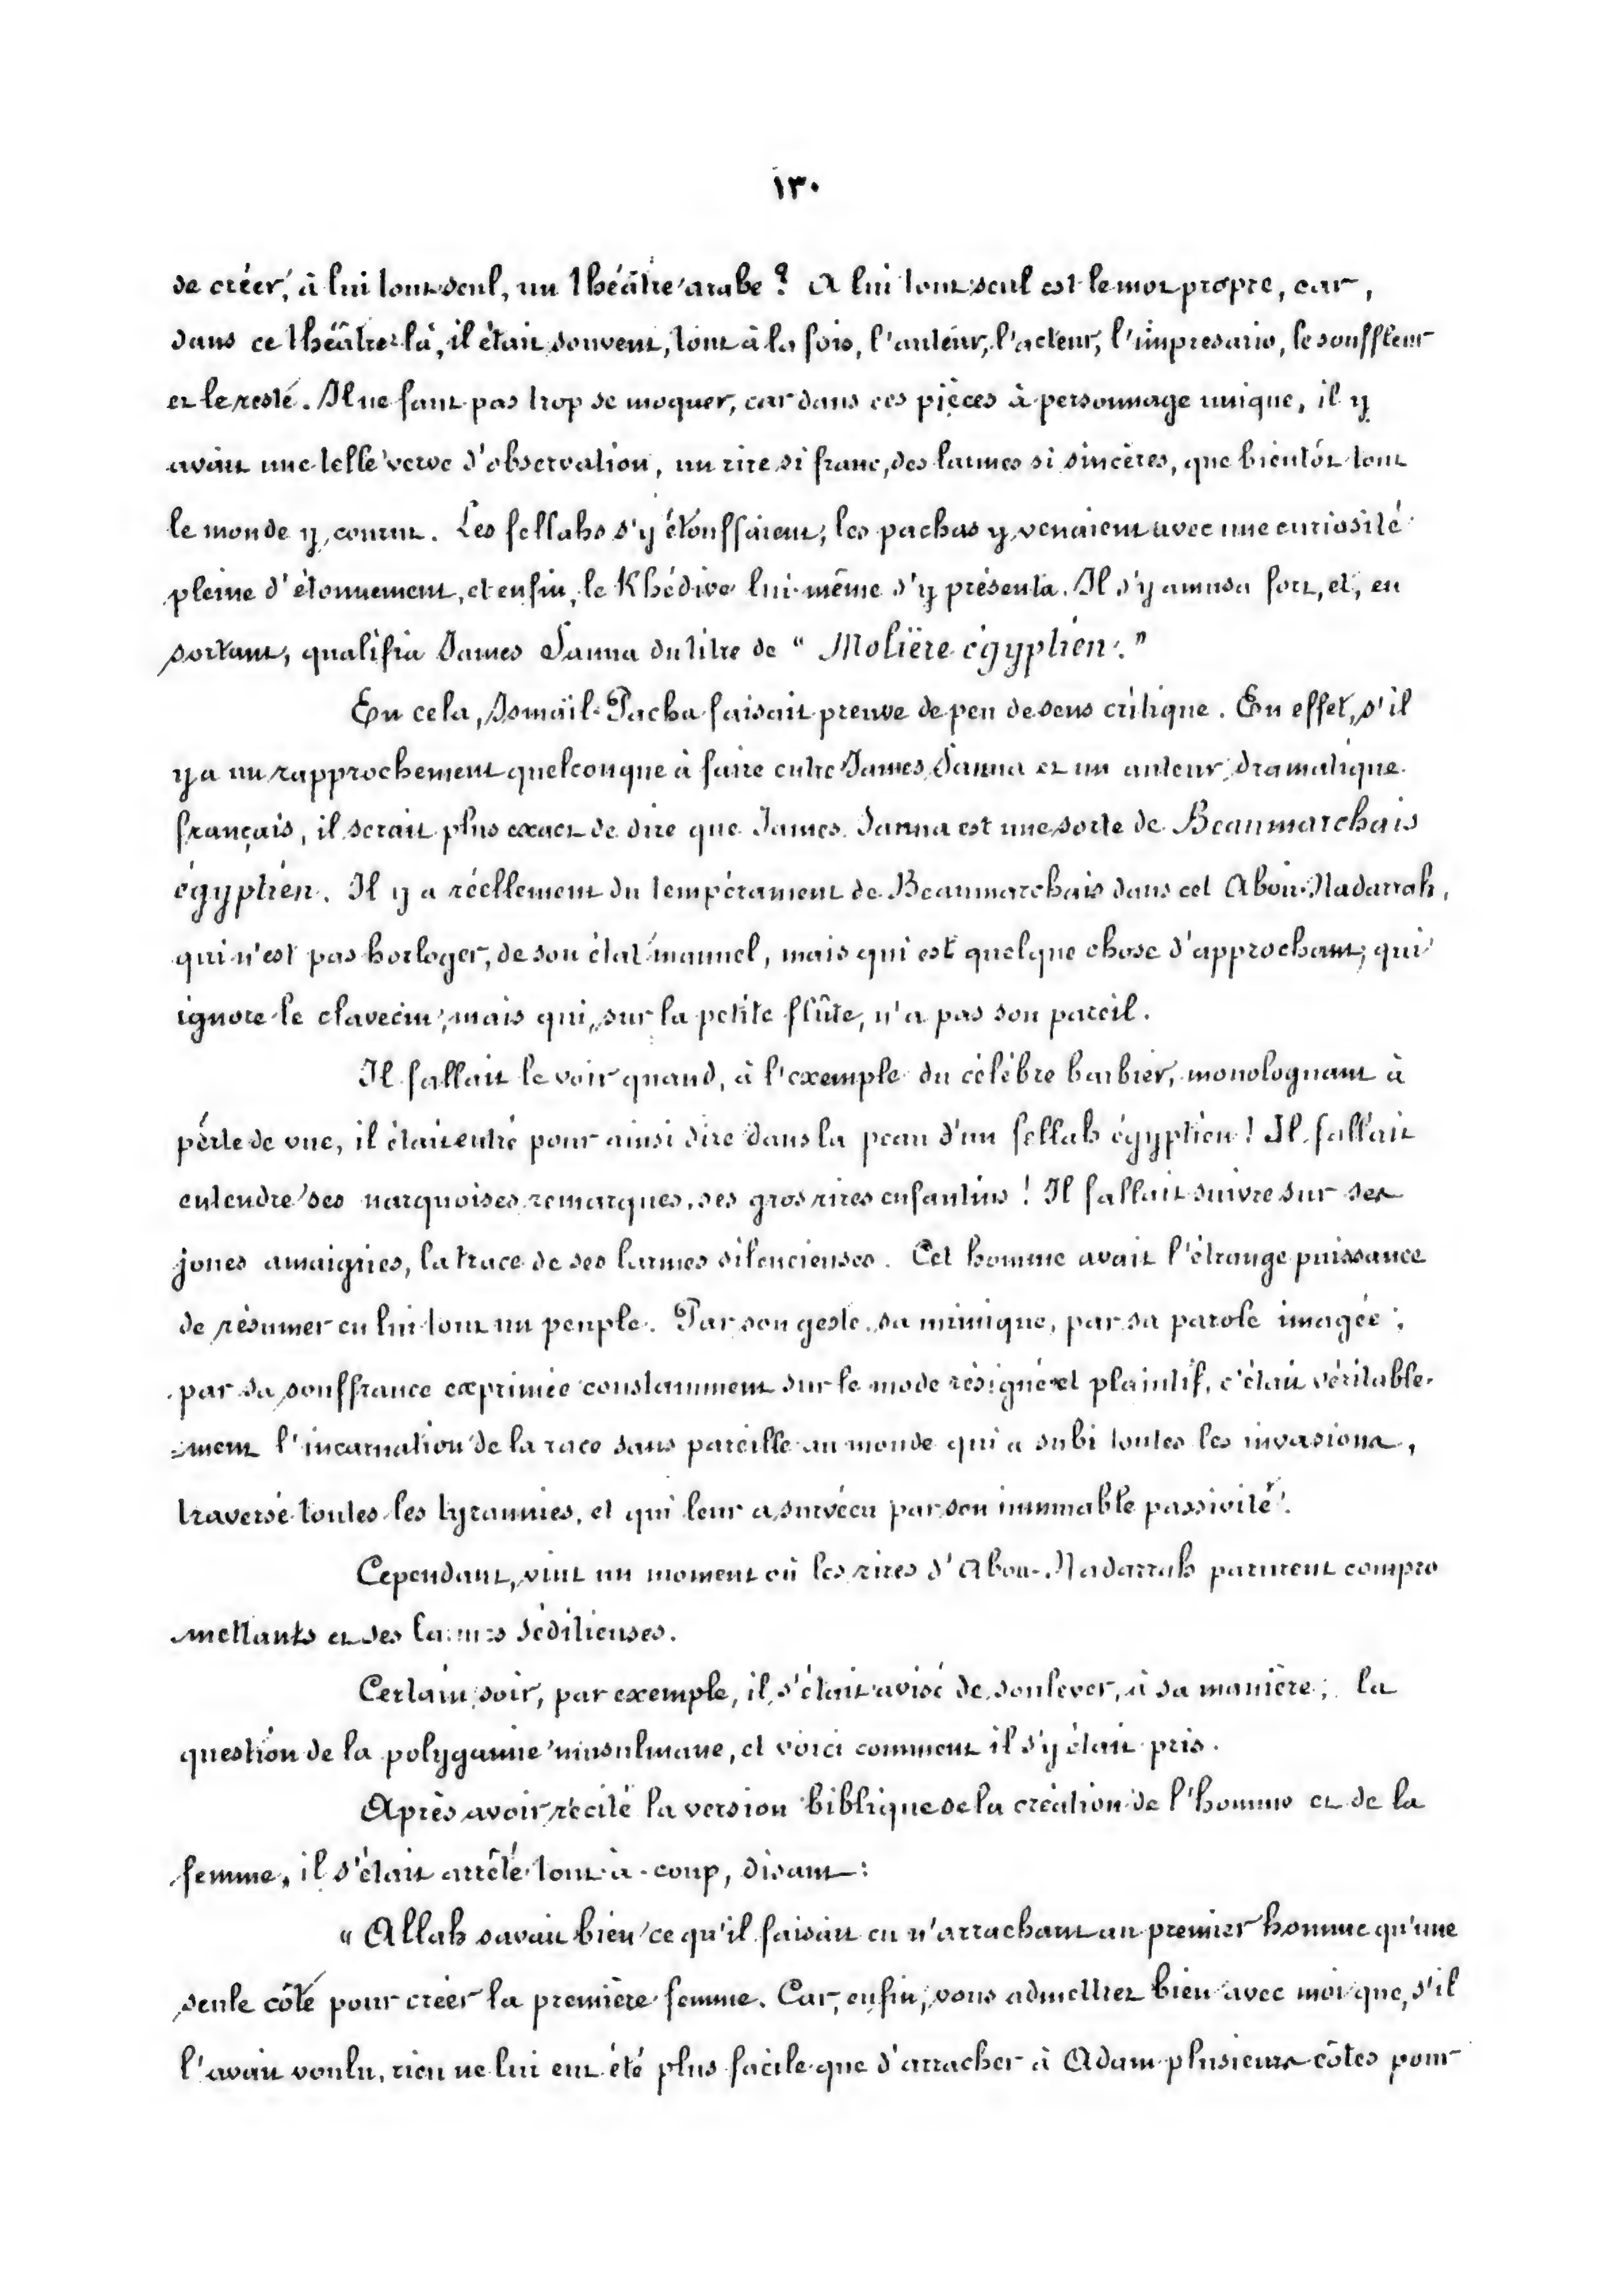 ١٣٠
de créer, à lui tout seul, un théâtre arabe ? A lui tout seul est le mot propre, car,
dans ce théâtre-là, il était souvent, tout à la fois, l'auteur, l'acteur, l'impresario, le souffleur
et le reste. Il ne faut pas trop se moquer, car dans ces pièces à personnage unique, il y
avait une telle verve d'observation, un rire si franc, des larmes si sincères, que bientôt tout
le monde y courut. Les fellahs s'y étouffaient; les pachas y venaient avec une curiosité
pleine d'étonnement, et enfin, le Khédive lui-même s'y présenta. Il s'y amusa fort, et, en
sortant, qualifia James Sanua du titre de " Molière égyptien."
En cela, Ismaïl-Pacha faisait preuve de peu de sens critique. En effet, s'il
y a un rapprochement quelconque à faire entre James Sanua et un auteur dramatique
français, il serait plus exact de dire que James Sanua est une sorte de Beaumarchais
égyptien. Il y a réellement du tempérament de Beaumarchais dans cet Abou-Nadarrah,
qui n'est pas horloger, de son état manuel, mais qui est quelque chose d'approchant; qui
ignore le clavecin, mais qui, sur la petite flûte, n'a pas son pareil.
Il fallait le voir quand, à l'exemple du célèbre barbier, monologuant à
perte de vue, il était entré pour ainsi dire dans la peau d'un fellah égyptien ! Il fallait
entendre ses narquoises remarques, ses gros rires enfantins ! Il fallait suivre sur ses
joues amaigries, la trace de ses larmes silencieuses. Cet homme avait l'étrange puissance
de résumer en lui tout un peuple. Par son geste, sa mimique, par sa parole imagée;
par sa souffrance exprimée constamment sur le mode résigné et plaintif, c'était véritable-
-ment l'incarnation de la race sans pareille au monde qui a subi toutes les invasions,
traversé toutes les tyrannies, et qui leur a survécu par son immuable passivité.
Cependant, vint un moment où les rires d'Abou-Nadarrah parurent compro
-mettants et ses larmes séditieuses.
Certain soir, par exemple, il s'était avisé de soulever, à sa manière, la
question de la polygamie musulmane, et voici comment il s'y était pris.
Après avoir récité la version biblique de la création de l'homme et de la
femme, il s'était arrêté tout-à-coup, disant:
« Allah savait bien ce qu'il faisait en n'arrachant au premier homme qu'une
seule côté pour créer la première femme. Car, enfin, vous admettrez bien avec moi que, s'il
l'avait voulu, rien ne lui eut été plus facile que d'arracher à Adam plusieurs côtes pour